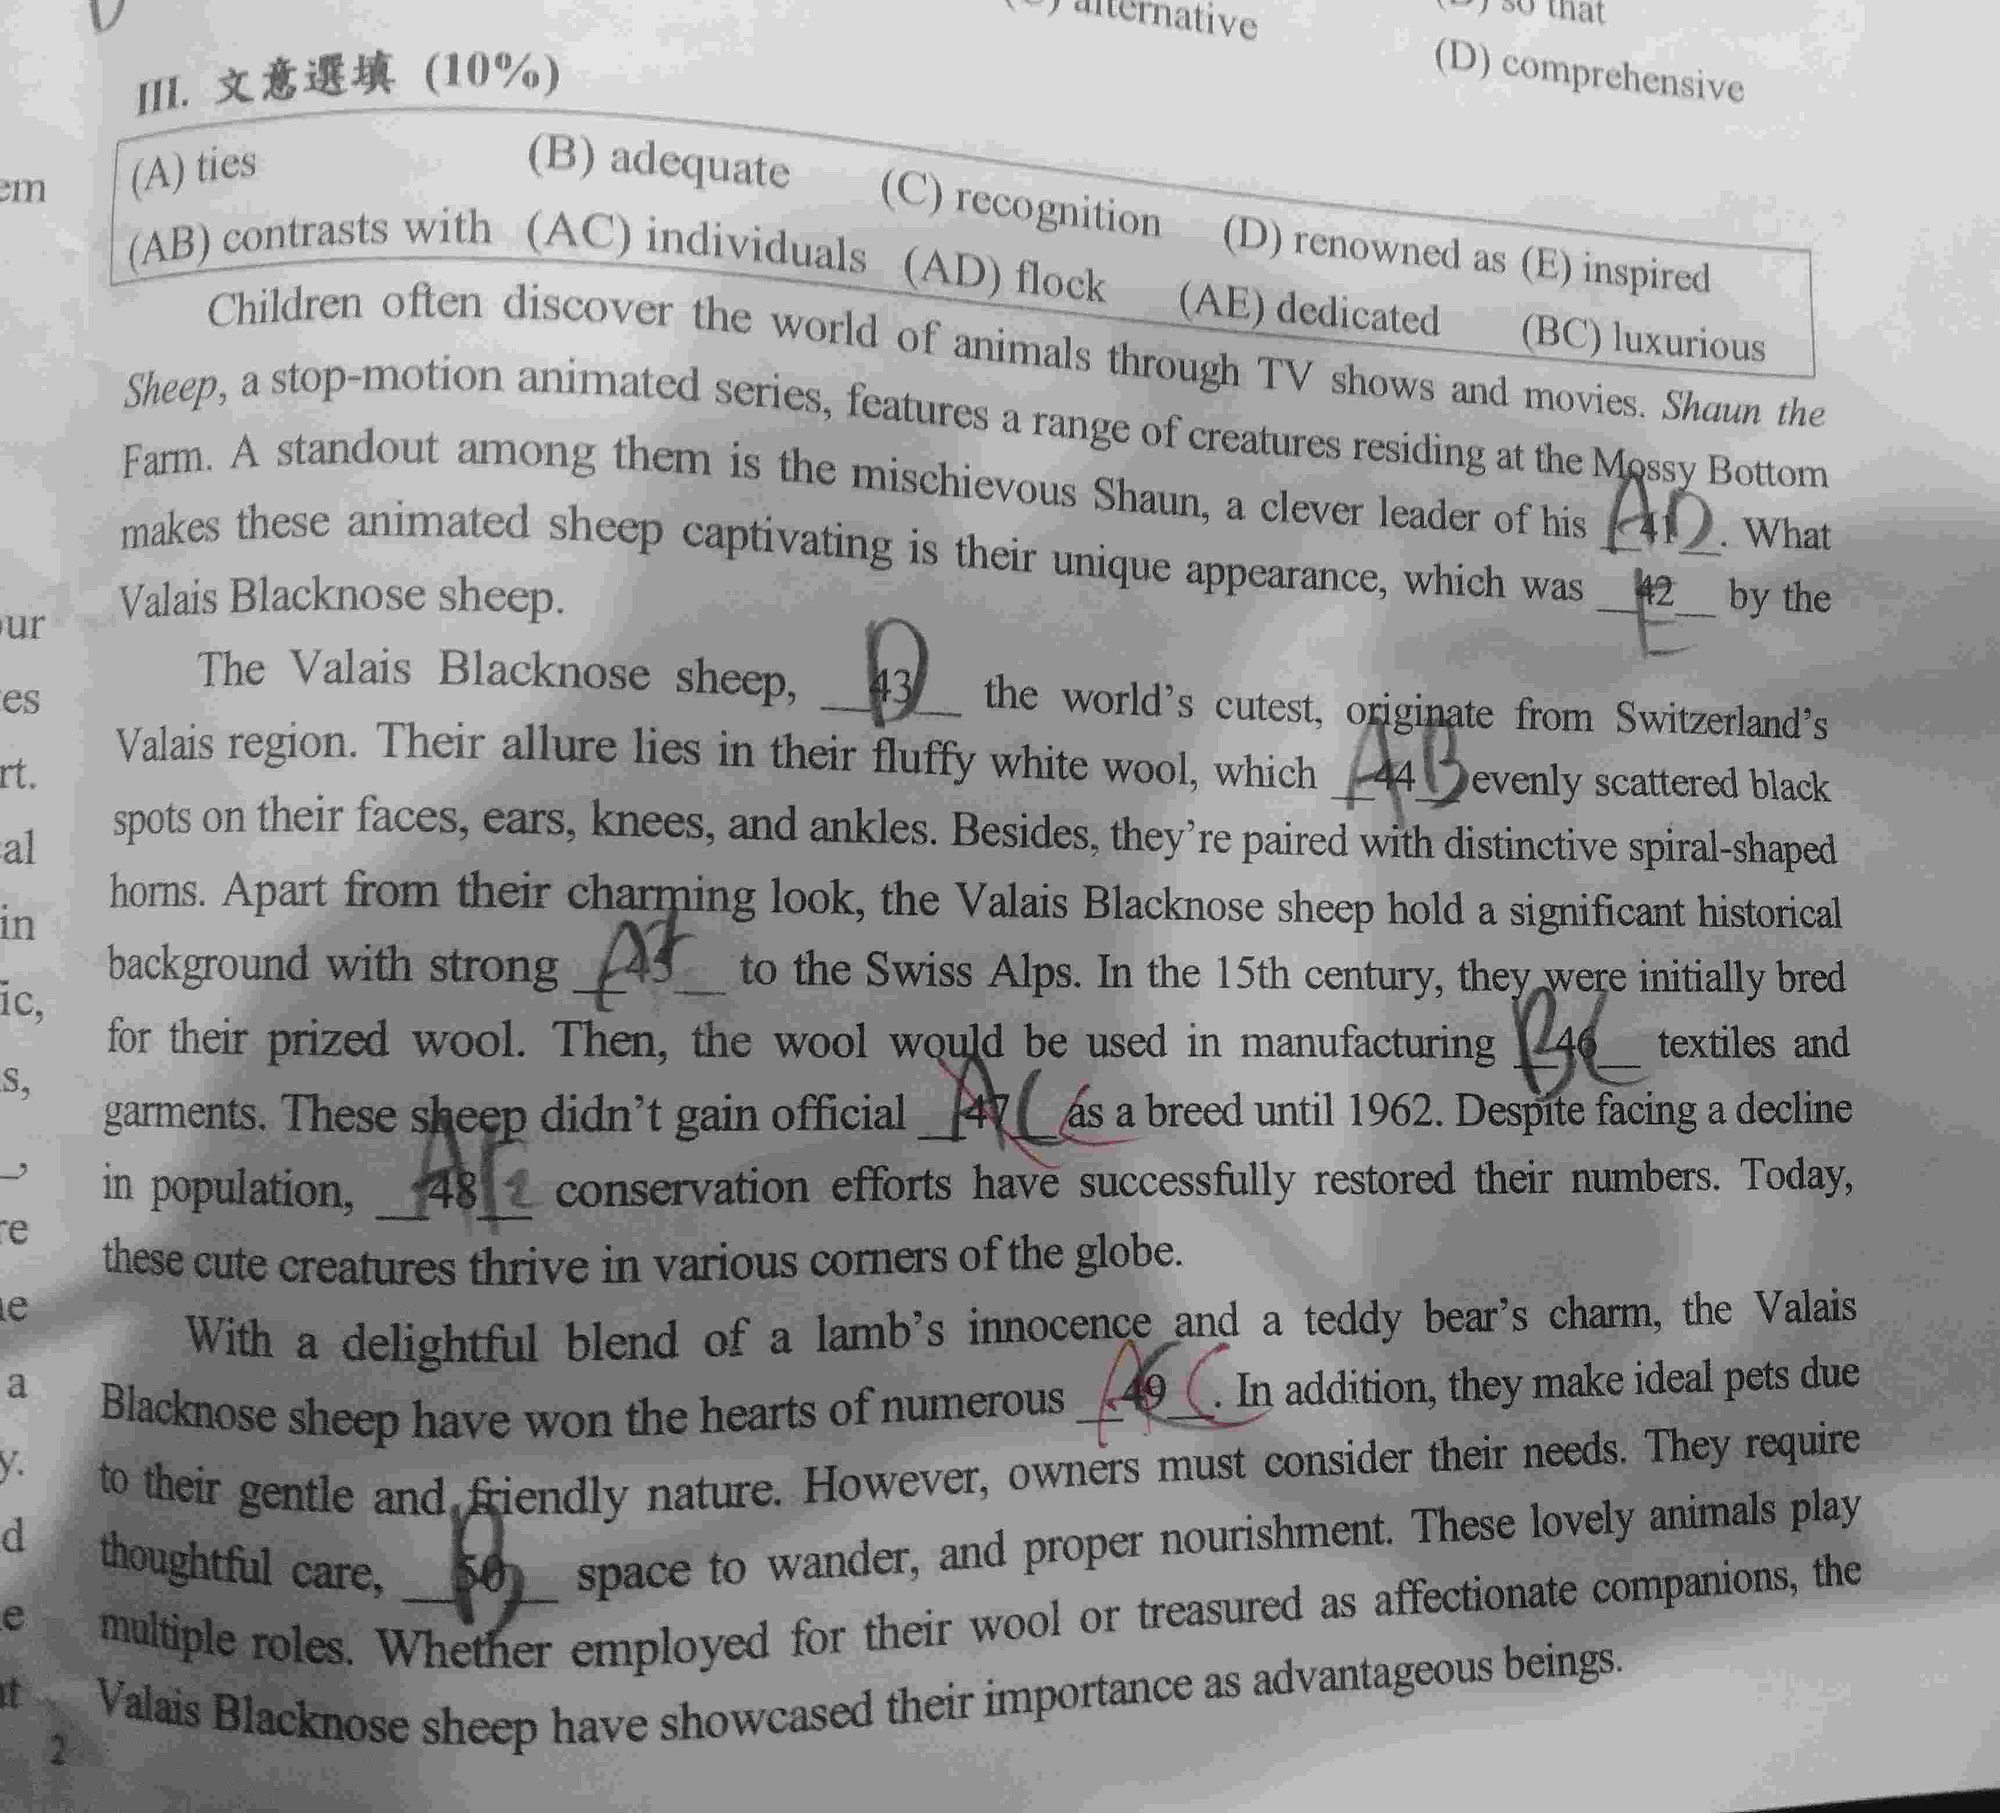 alternative
so that
(D) comprehensive
III. 文意選填 (10%)
(A) ties (B) adequate (C) recognition (D) renowned as (E) inspired
(AB) contrasts with (AC) individuals (AD) flock (AE) dedicated (BC) luxurious
Children often discover the world of animals through TV shows and movies. Shaun the
Sheep, a stop-motion animated series, features a range of creatures residing at the Mossy Bottom
Farm. A standout among them is the mischievous Shaun, a clever leader of his 41 AD. What
makes these animated sheep captivating is their unique appearance, which was 42 E by the
Valais Blacknose sheep.
The Valais Blacknose sheep, 43 D the world's cutest, originate from Switzerland's
Valais region. Their allure lies in their fluffy white wool, which 44 AB evenly scattered black
spots on their faces, ears, knees, and ankles. Besides, they're paired with distinctive spiral-shaped
horns. Apart from their charming look, the Valais Blacknose sheep hold a significant historical
background with strong 45 A to the Swiss Alps. In the 15th century, they were initially bred
for their prized wool. Then, the wool would be used in manufacturing 46 BC textiles and
garments. These sheep didn't gain official 47 AC C as a breed until 1962. Despite facing a decline
in population, 48 AE conservation efforts have successfully restored their numbers. Today,
these cute creatures thrive in various corners of the globe.
With a delightful blend of a lamb's innocence and a teddy bear's charm, the Valais
Blacknose sheep have won the hearts of numerous 49 AC. In addition, they make ideal pets due
to their gentle and friendly nature. However, owners must consider their needs. They require
thoughtful care, 50 B space to wander, and proper nourishment. These lovely animals play
multiple roles. Whether employed for their wool or treasured as affectionate companions, the
Valais Blacknose sheep have showcased their importance as advantageous beings.
2